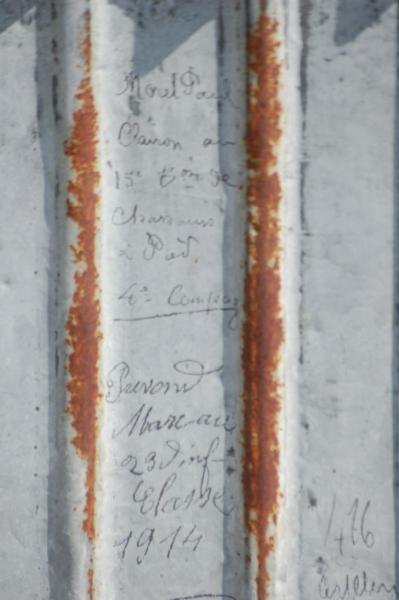 Morel Paul
Clairon au
15e Bon de
Chasseurs
à Pied
4e Compag
Prevond
Marc au
23 d'inf
Classe
1914
1/416